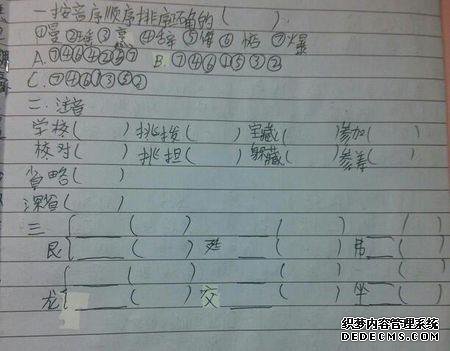 一.按音序顺序排序正确的(    )
①曼 ②辞 ③ ④辞 ⑤ ⑥ ⑦爆
A.⑦④⑥④②⑤⑦ B.⑦④⑥①⑤③②
C.⑦④⑥①③⑤②
二.注音
学校(    )挑拨(    )宝藏(    )参加(    )
校对(    )挑担(    )躲藏(    )参差(    )
省略(    )
深省(    )
三 (    ) (    ) (    )
民 (    ) 甡 (    ) 吊 (    )
(    ) (    ) (    )
龙 (    ) 交 (    ) 坐 (    )
织梦内容管理系统
DEDECMS.COM